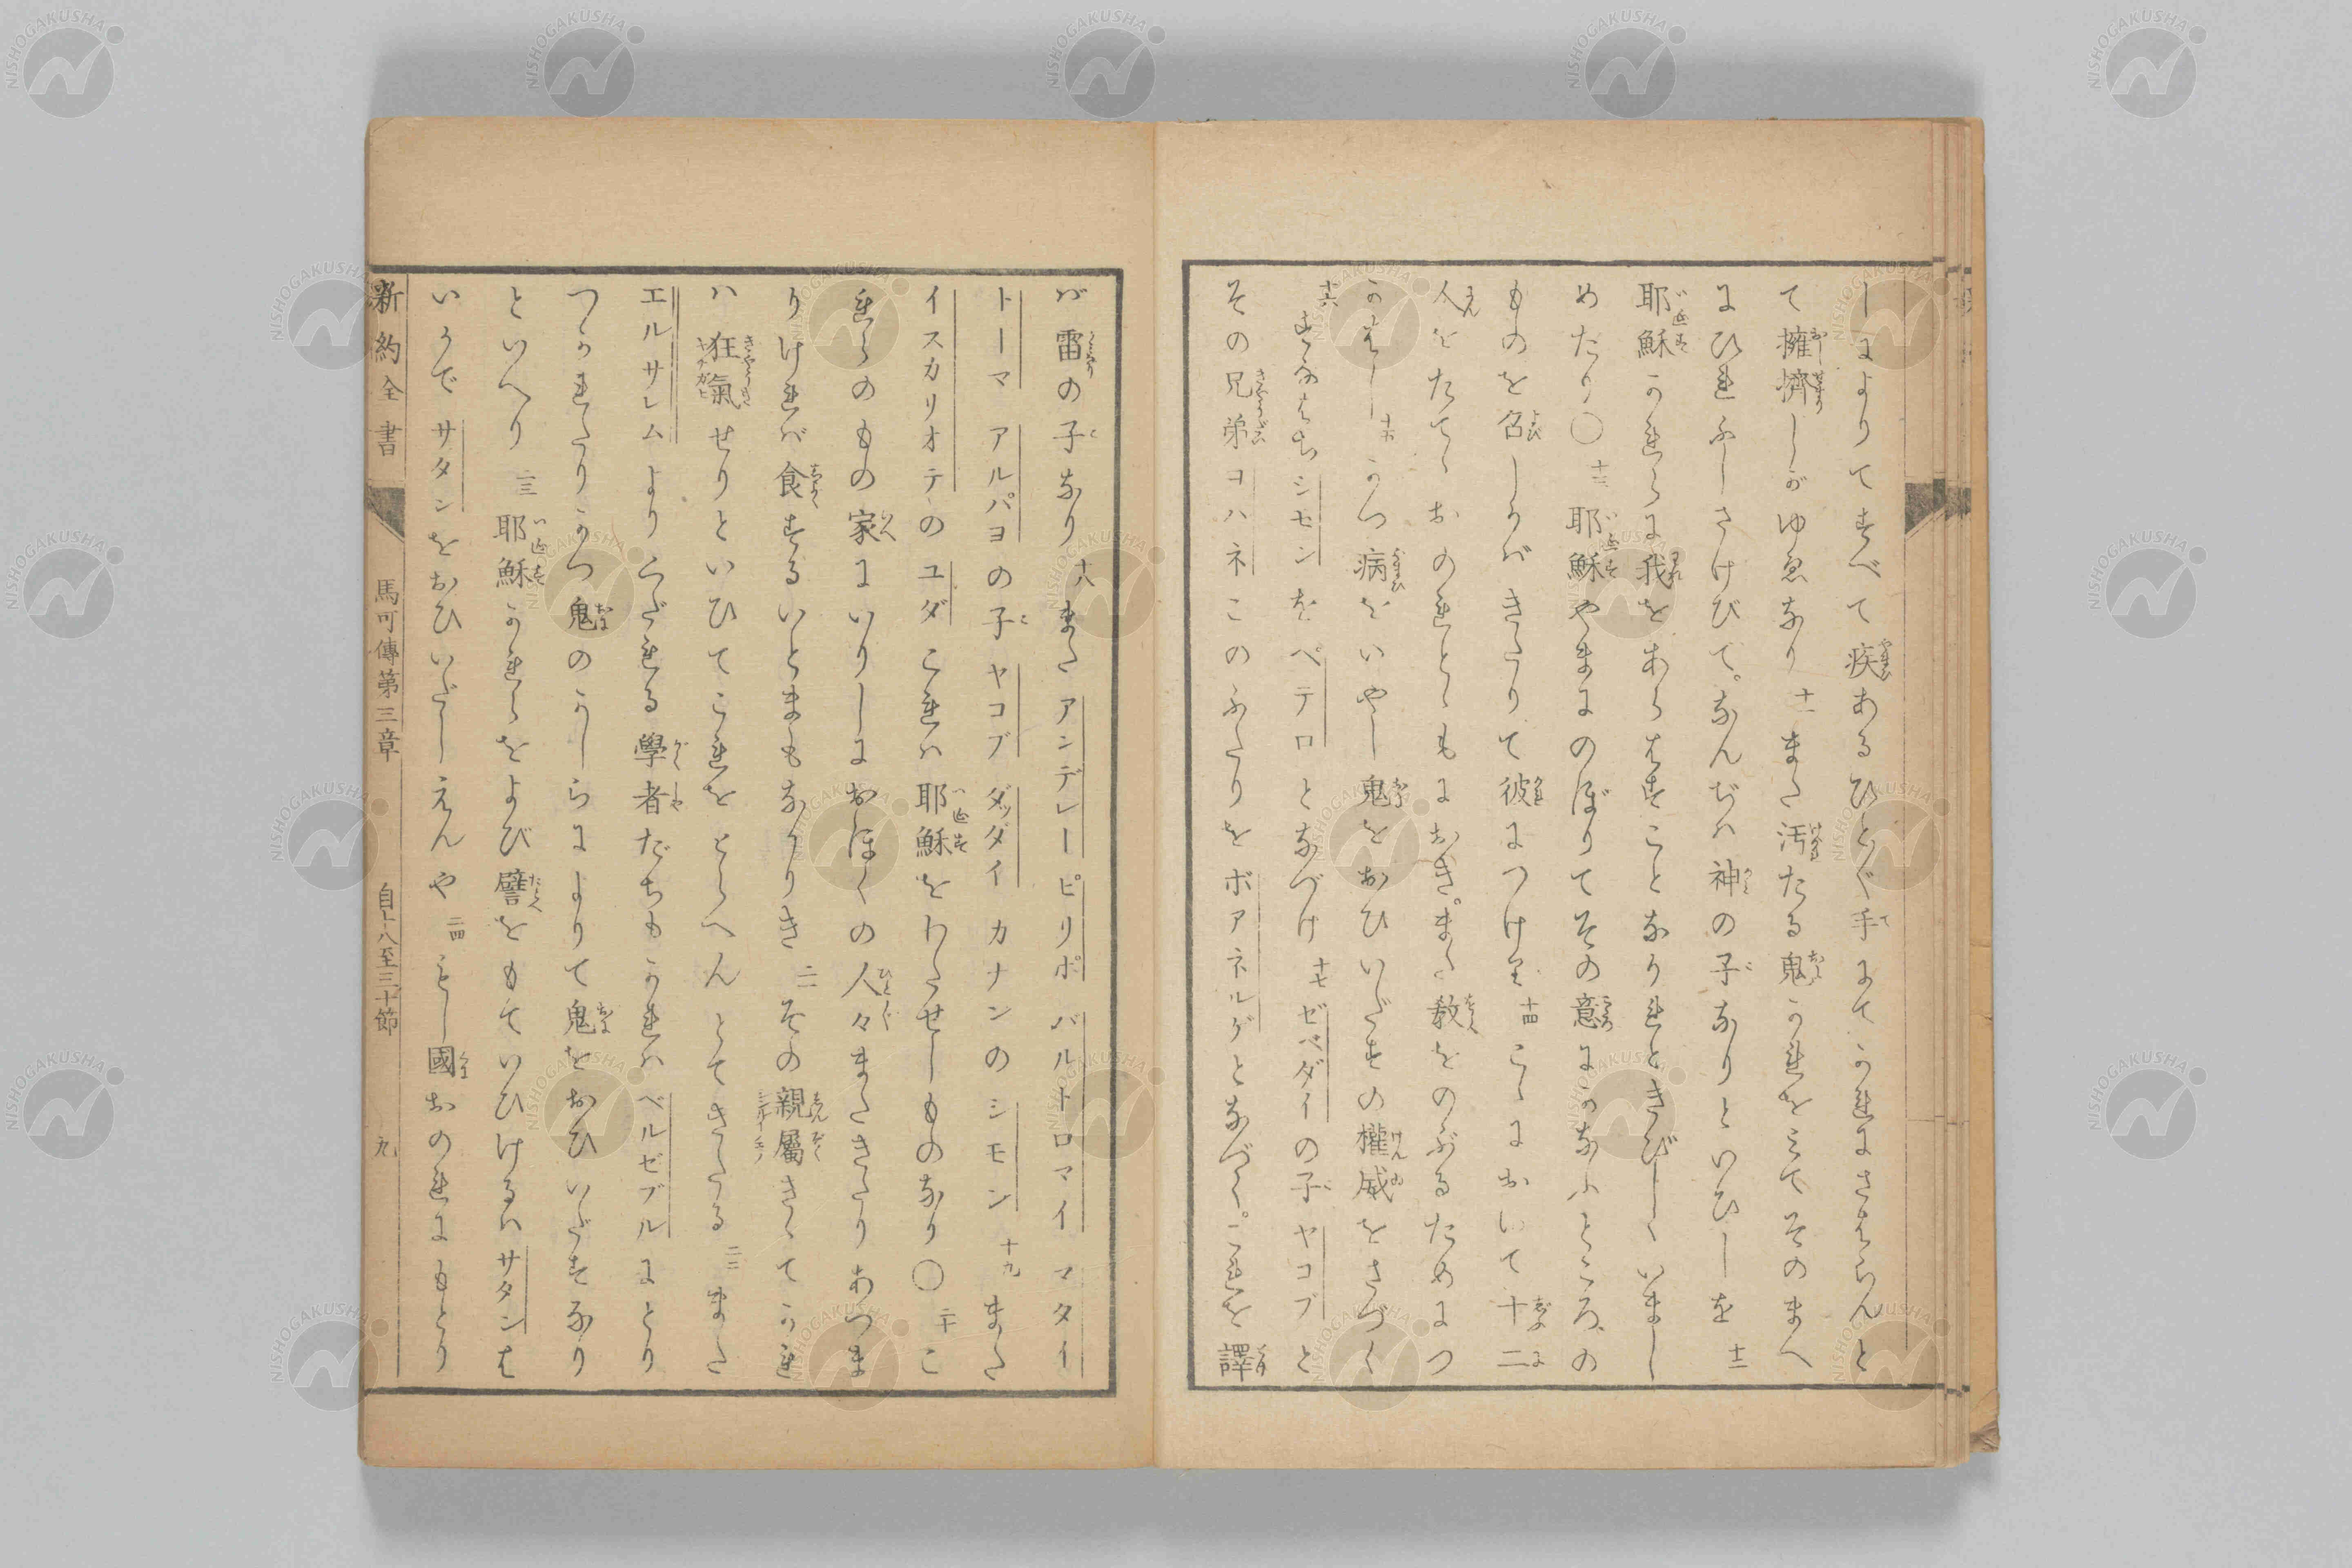 しによりてすべて疾あるひとぐ手にてかれにさはらんと
て擁擠しがゆゑなり 十一 また汚たる鬼かれをみてそのまへ
にひれふしさけびて。なんぢハ神の子なりといひしを 十二
耶穌かれらに我をあらはすことなかれときびしくいまし
めたり〇 十三 耶穌やまにのぼりてその意にかなふところの
ものを召しかバきたりて彼につけり 十四 こゝにおいて十二
人をたてゝおのれとゝもにおき。また教をのぶるためにつ
かはし 十五 かつ病をいやし鬼をおひいだすの權威をさづく
十六 すなはちシモンをペテロとなづけ 十七 ゼベダイの子ヤコブと
その兄弟ヨハネこのふたりをボアネルゲとなづく。これを譯
バ雷の子なり 十八 またアンデレー ピリポ バルトロマイ マタイ
トーマ アルパヨの子ヤコブ ダッダイ カナンのシモン 十九 また
イスカリオテのユダこれハ耶穌をわたせしものなり〇 二十 こ
れらのもの家にいりしにおほくの人々またきたりあつま
りければ食するいとまもなかりき 二一 その親屬きゝてかれ
ハ狂氣せりといひてこれをとらへんとてきたる 二二 また
エルサレムよりくだれる學者たちもかれハベルゼブルにとり
つかれたりかつ鬼のかしらによりて鬼をおひいだすなり
といへり 二三 耶穌かれらをよび譬をもていひけるハサタンは
いかでサタンをおひいだしえんや 二四 もし國おのれにもとり
新約全書 馬可傳第三章 自十八至二十節 九